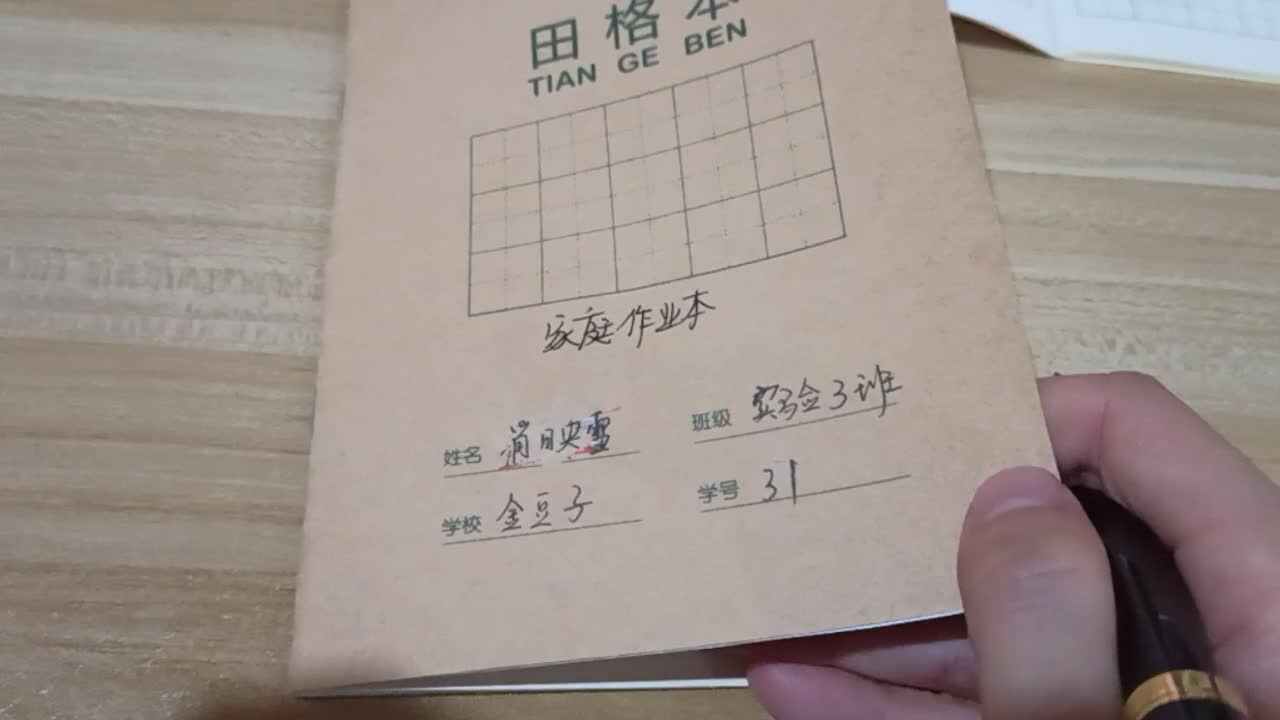 田格本
TIAN GE BEN
家庭作业本
姓名 肖映雪
班级 实验3班
学校 金豆子
学号 31